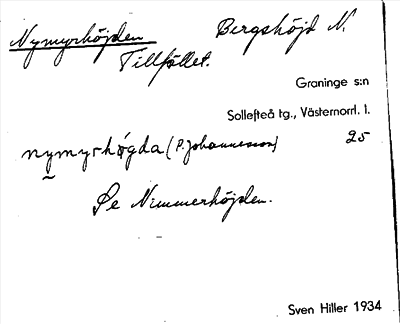 Nymyrhöjden Bergshöjd N.
Tillfället.
Graninge s:n
Sollefteå tg., Västernorrl. l.
nymyrhögda (P. Johannesson) 25
Se Nimmerhöjden.
Sven Hiller 1934